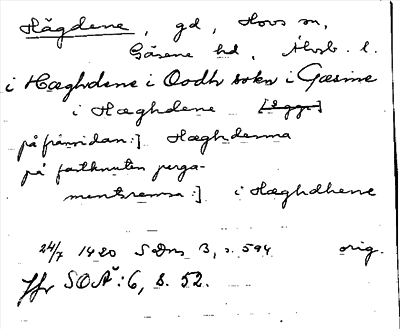 Hägdene, gd, Hovs sn,
Gäsene hd, Älvsb. l.
i Hæghdene i Oodh sokn i Gæsme
i Hæghdene [
på främsidan:] Hæghdenna
på fastknuten perga-
mentsremsa:] i Hæghdhene
24/7 1420 SDns 3, s. 594 orig.
Jfr SOÄ: 6, s. 52.